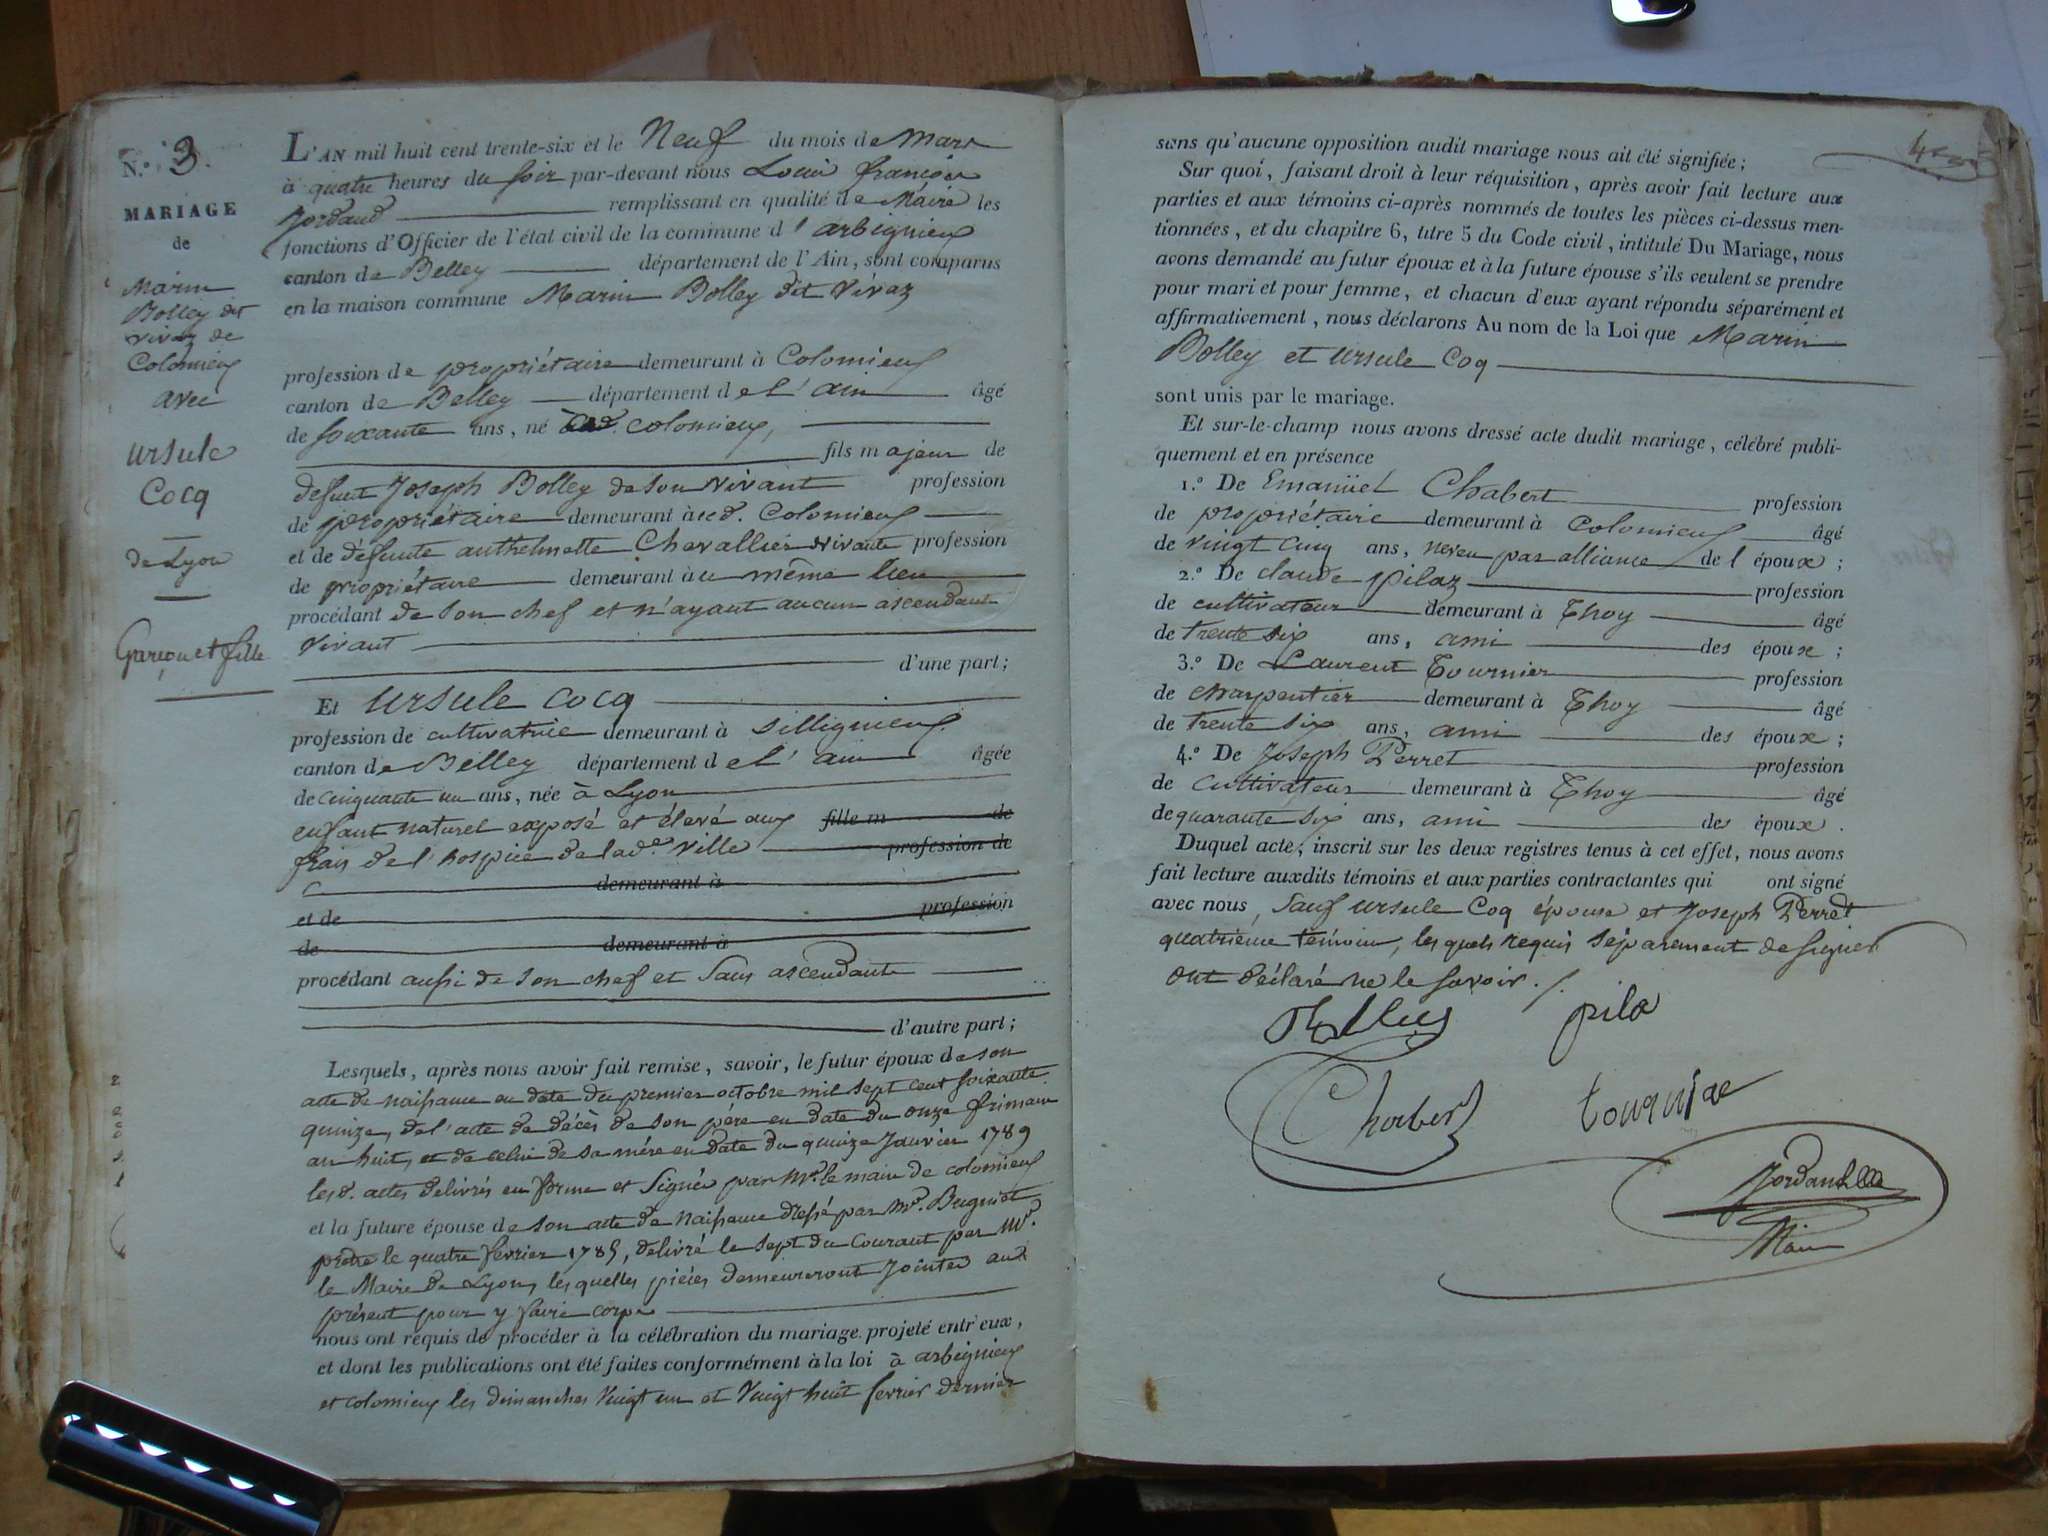 N.º 3.
MARIAGE
de
Marin
Bolley dit
vivaz de
Colomieu
avec
Ursule
Cocq
de Lyon
Garçon et fille
L'AN mil huit cent trente-six et le Neuf du mois de Mars
à quatre heures du soir par-devant nous Louis françois
Jordand remplissant en qualité de Maire les
fonctions d'Officier de l'état civil de la commune d'arbignieu
canton de Belley département de l'Ain, sont comparus
en la maison commune Marin Bolley dit Vivaz
profession de propriétaire demeurant à Colomieu
canton de Belley département de l'ain âgé
de soixante ans, né à colomieu,
fils majeur de
defunt Joseph Bolley de son vivant profession
de propriétaire demeurant aud. Colomieu
et de défunte anthelmette Chevallier vivante profession
de propriétaire demeurant au même lieu
procédant de son chef et n'ayant aucun ascendant
vivant
d'une part;
Et Ursule Cocq
profession de cultivatrice demeurant à Sillignieu
canton de Belley département de l'ain âgée
de cinquante un ans, née à Lyon
enfant naturel exposé et élevé aux fille m de
frais de l'hospice de lad.e Ville profession de
demeurant à
et de profession
de demeurant à
procédant aussi de son chef et sans ascendants
d'autre part;
Lesquels, après nous avoir fait remise, savoir, le futur époux de son
acte de naissance en date du premier octobre mil sept cent soixante
quinze, de l'acte de décès de son père en date du onze frimaire
an huit, et de celui de sa mère en date du quinze Janvier 1789
lesd. actes delivrés en forme et signés par Mr. le maire de colomieu
et la future épouse de son acte de Naissance dressé par Mr. Bugniet
prêtre le quatre février 1785, delivré le sept du Courant par Mr.
le Maire de Lyon, les quelles pièces demeureront Jointes aux
présent pour y faire corps
nous ont requis de procéder à la célébration du mariage projeté entr'eux,
et dont les publications ont été faites conformément à la loi à arbignieu
et colomieu les dimanches Vingt un et Vingt huit fevrier dernier
sans qu'aucune opposition audit mariage nous ait été signifiée;
Sur quoi, faisant droit à leur réquisition, après avoir fait lecture aux
parties et aux témoins ci-après nommés de toutes les pièces ci-dessus men-
tionnées, et du chapitre 6, titre 5 du Code civil, intitulé Du Mariage, nous
avons demandé au futur époux et à la future épouse s'ils veulent se prendre
pour mari et pour femme, et chacun d'eux ayant répondu séparément et
affirmativement, nous déclarons Au nom de la Loi que Marin
Bolley et Ursule Coq
sont unis par le mariage.
Et sur-le-champ nous avons dressé acte dudit mariage, célébré publi-
quement et en présence
1.º De Emanüel Chabert profession
de propriétaire demeurant à Colomieu âgé
de vingt cinq ans, neveu par alliance de l'époux;
2.º De claude Pilaz profession
de cultivateur demeurant à Thoy âgé
de trente six ans, ami des époux;
3.º De Laurent Tournier profession
de charpentier demeurant à Thoy âgé
de trente six ans, ami des époux;
4.º De Joseph Perret profession
de Cultivateur demeurant à Thoy âgé
de quarante six ans, ami des époux.
Duquel acte, inscrit sur les deux registres tenus à cet effet, nous avons
fait lecture auxdits témoins et aux parties contractantes qui ont signé
avec nous, sauf Ursule Coq épouse et Joseph Perret
quatrième témoin, les quels requis séparement de signer
ont déclaré ne le savoir./.
pila
Chabert
tournier
Jordand
Maire